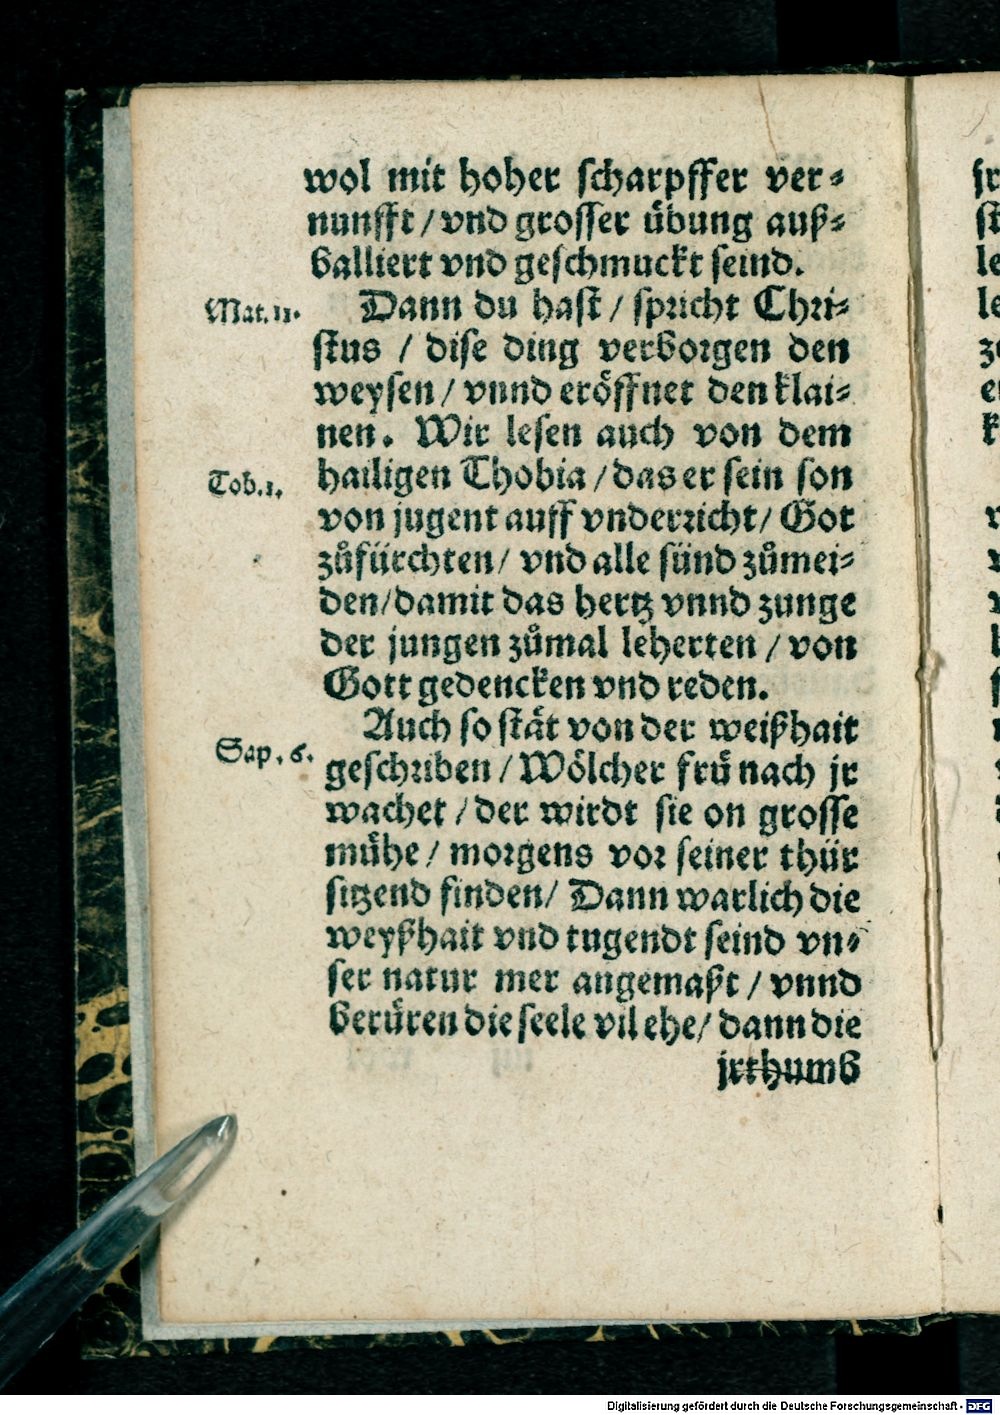 wol mit hoher scharpffer ver⸗
nunfft / vnd grosser übung auß⸗
balliert vnd geschmuckt seind.
Mat. 11. Dann du hast / spricht Chri⸗
stus / dise ding verborgen den
weysen / vnnd eröffnet den klai⸗
nen. Wir lesen auch von dem
Tob. 1. hailigen Thobia / das er sein son
von jugent auff vnderricht / Got
zůfürchten / vnd alle sünd zůmei⸗
den / damit das hertz vnnd zunge
der jungen zůmal leherten / von
Gott gedencken vnd reden.
Auch so stät von der weißhait
Sap. 6. geschriben / Wölcher frü nach jr
wachet / der wirdt sie on grosse
mühe / morgens vor seiner thür
sitzend finden / Dann warlich die
weyßhait vnd tugendt seind vn⸗
ser natur mer angemaßt / vnnd
berüren die seele vil ehe / dann die
jrthumb
Digitalisierung gefördert durch die Deutsche Forschungsgemeinschaft - DFG